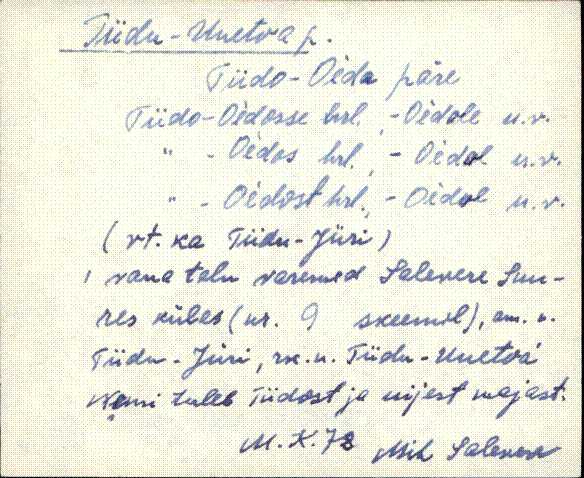 Tiidu-Unetoa p.
Tiido-Oẽda päre
Tiido-Oẽdasse hrl., -Oẽdale u.v.
" - Oẽdas hrl., - Oẽdal u.v.
" - Oẽdast hrl., - Oẽdal u.v.
(vt. ka Tiidu-Jüri)
vana talu varemed Salevere Suu-
res külas (nr. 9 skeemil), am. n.
Tiidu-Jüri, rk. n. Tiidu-Unetoa
Nimi tuleb Tiidost ja uijest majast.
M.K.78 Mih Salevere